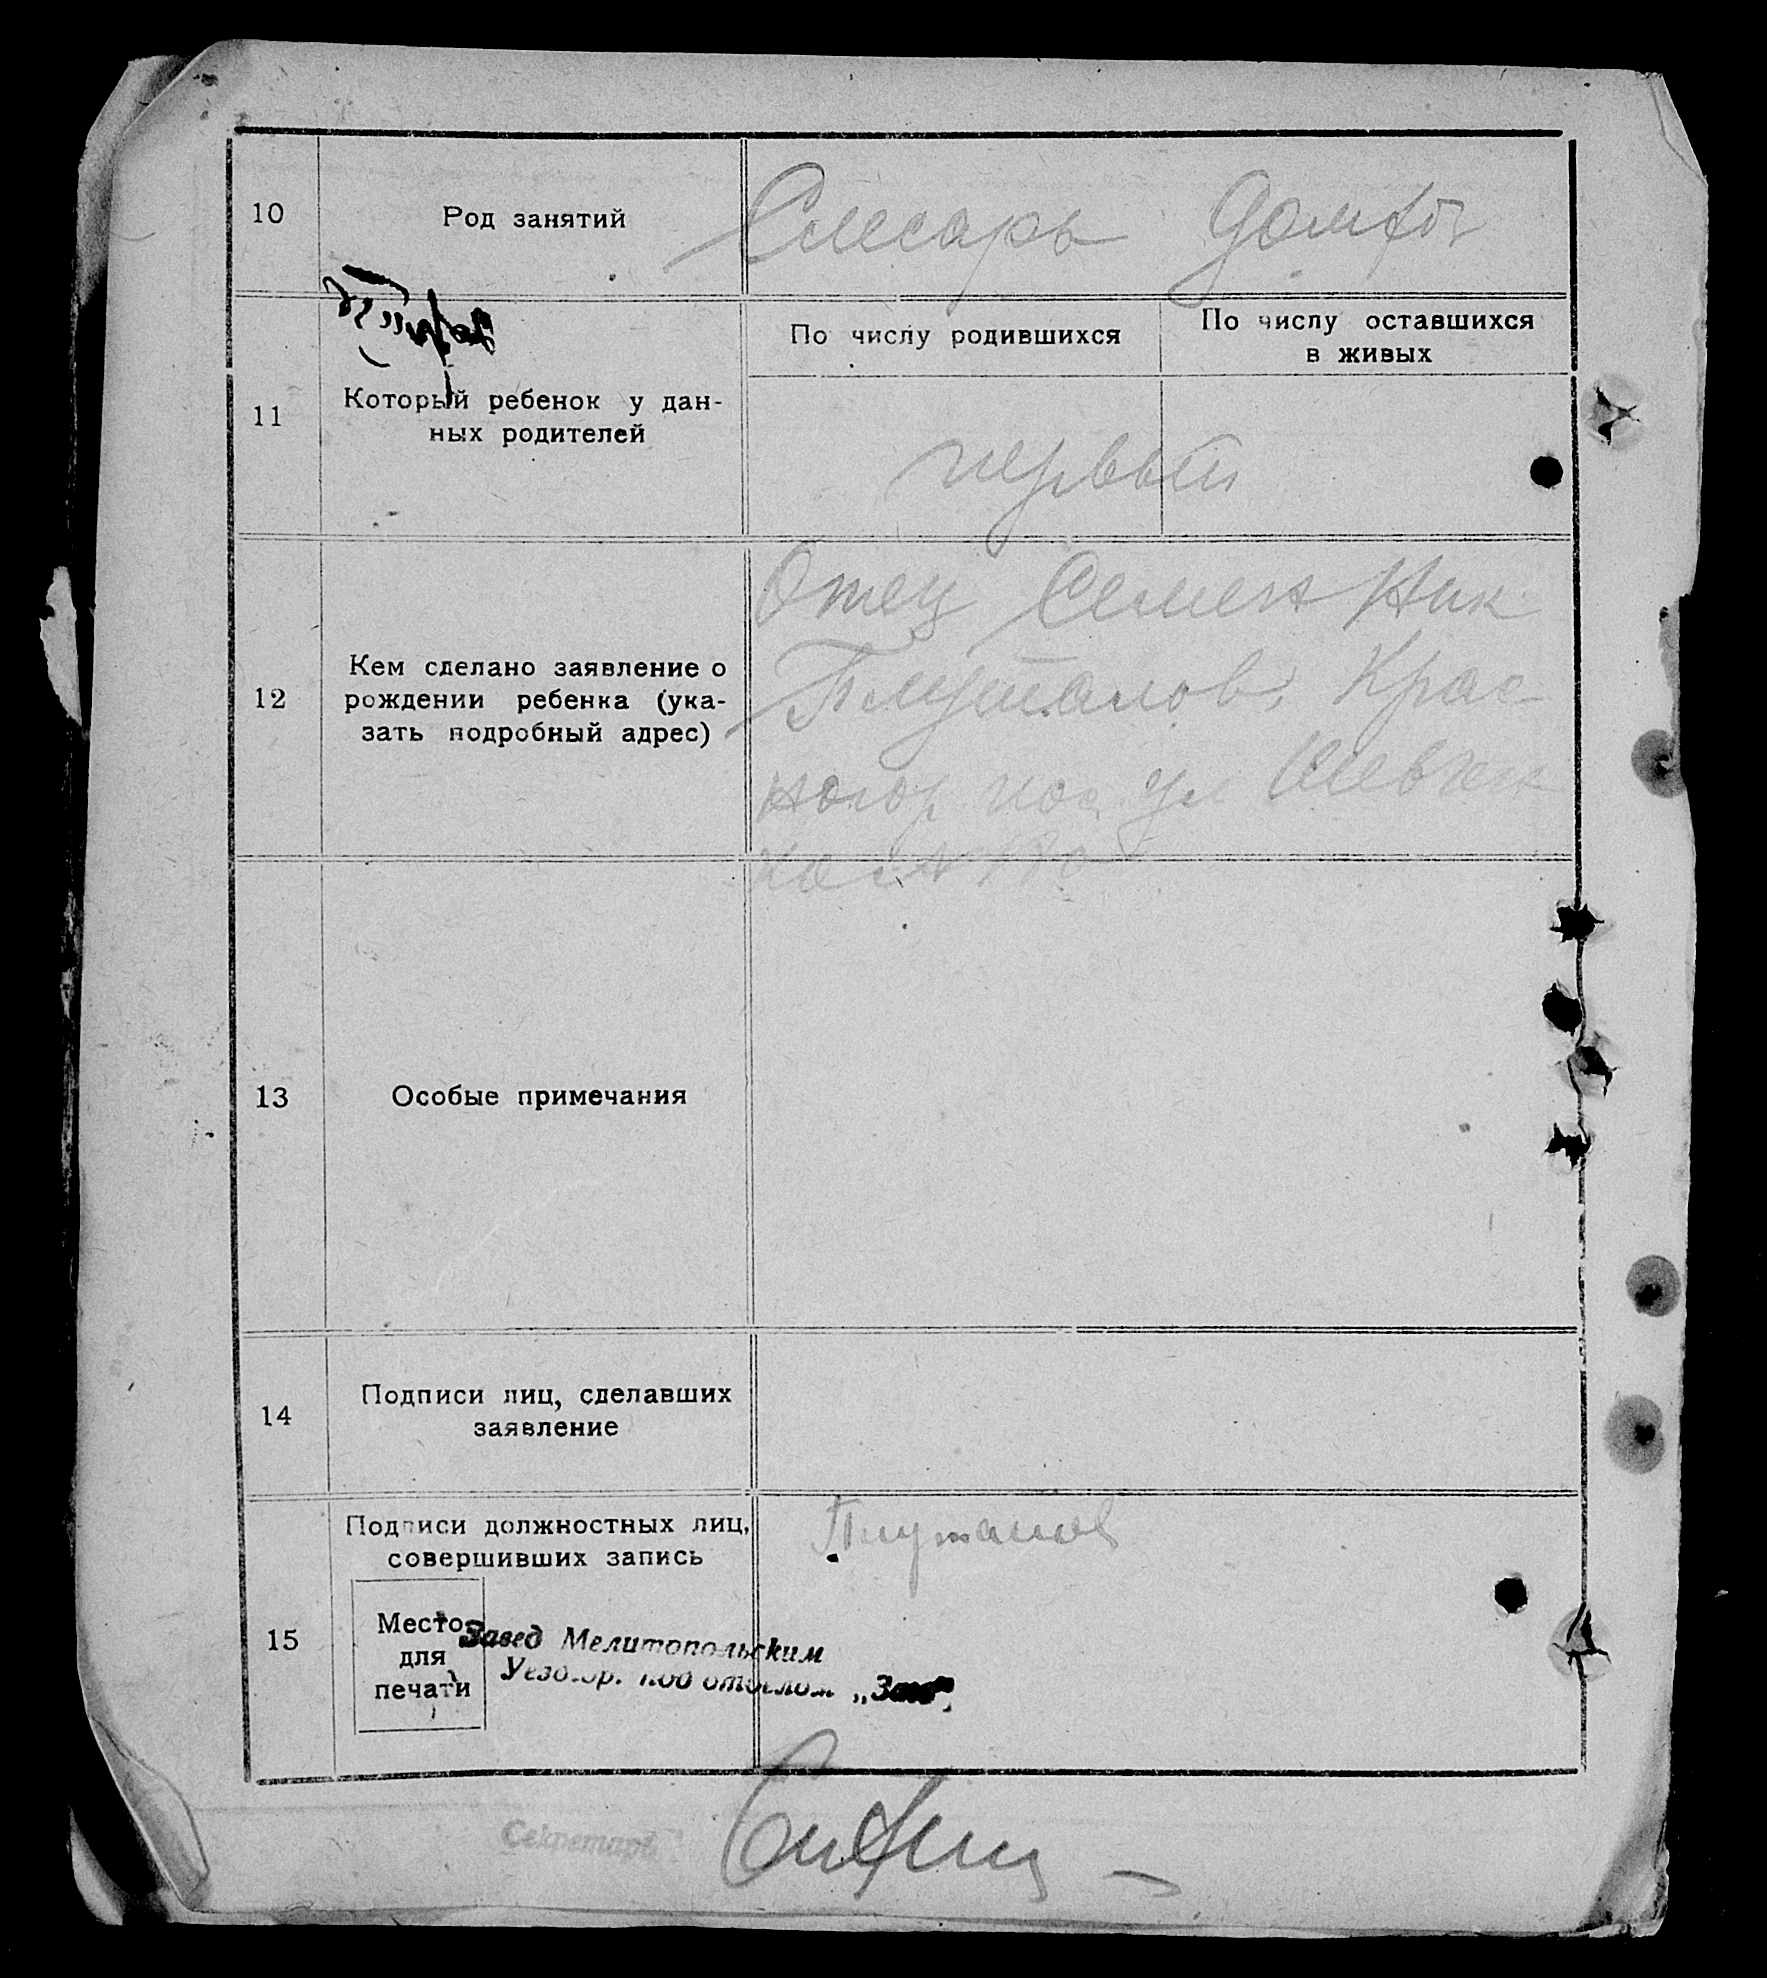 10
Род занятий
Слесарь
По числу родившихся
По числу оставшихся
в живых
11
Который ребенок у дан-
ных родителей
первый
12
Кем сделано заявление о
рождении ребенка (ука-
зать подробный адрес)
Отец Семен Ник
Крас-
ногор ул Шевчен
13
Особые примечания
14
Подписи лиц, сделавших
заявление
Подписи должностных лиц,
совершивших запись
15
Место
для
печати
Завед Мелитопольским
Уездгор. под отделом „Загс"
Секретарь